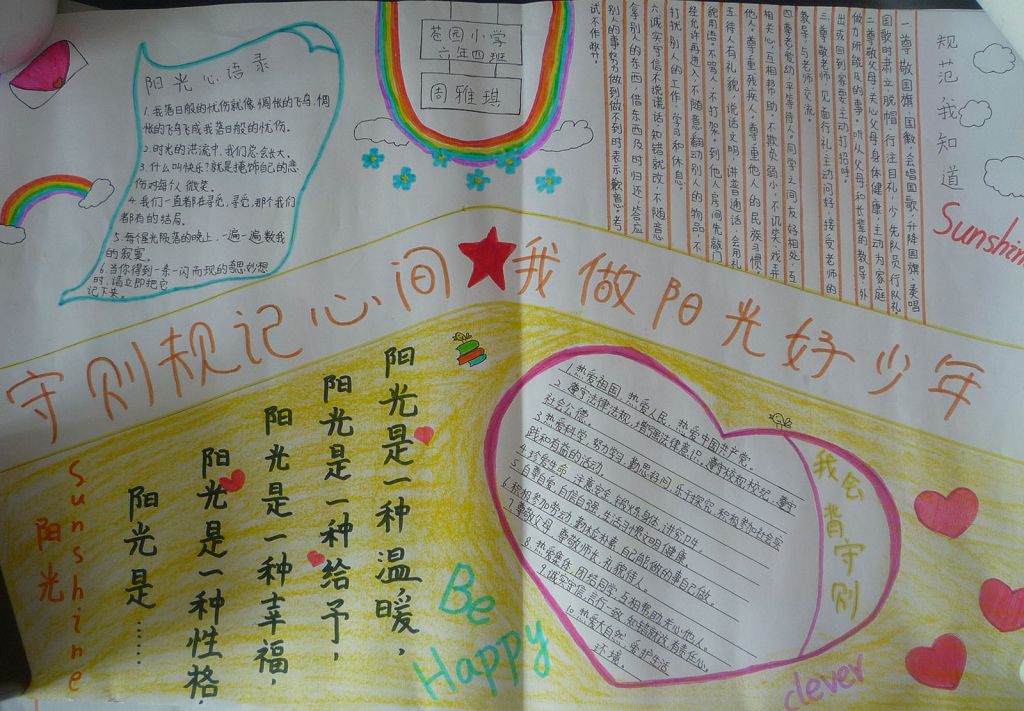 阳光心语录
1.我落日般的忧伤就像惆怅的飞鸟,惆
怅的飞鸟飞成我落日般的忧伤。
2.时光的洪流中,我们总会长大。
3.什么叫快乐?就是掩饰自己的悲
伤对每个人微笑。
4.我们一直都在寻觅,寻觅,那个我们
都有的结局。
5.每个星光陨落的晚上,一遍一遍数我
的寂寞。
6.当你得到一条一闪而现的奇思妙想
时,请立即把它
记下来。
苍园小学
六年四班
周雅琪
规范我知道
一尊敬国旗国徽,会唱国歌,升降国旗、奏唱
国歌时肃立脱帽,行注目礼,少先队员行队礼。
二尊敬父母,关心父母身体健康,主动为家庭
做力所能及的事。听从父母和长辈的教导,外
出或回到家要主动打招呼。
三尊敬老师,见面行礼,主动问好,接受老师的
教导,与老师交流。
四尊老爱幼,平等待人。同学之间友好相处,互
相关心,互相帮助。不欺负弱小,不讥笑、戏弄
他人。尊重残疾人。尊重他人的民族习惯。
五待人有礼貌,说话文明,讲普通话,会用礼
貌用语。不骂人,不打架。到他人房间先敲门
经允许再进入,不随意翻动别人的物品,不
打扰别人的工作、学习和休息。
六诚实守信,不说谎话,知错就改,不随意
拿别人的东西,借东西及时归还,答应
别人的事努力做到,做不到时表示歉意。考
试不作弊。
Sunshin
守则规记心间★我做阳光好少年
阳光是一种温暖,
阳光是一种给予,
阳光是一种幸福,
阳光是一种性格,
阳光是……
Sunshine
阳光
Be
Happy
我会背守则
1.热爱祖国,热爱人民,热爱中国共产党。
2.遵守法律法规,增强法律意识。遵守校规校纪,遵守
社会公德。
3.热爱科学,努力学习,勤思好问,乐于探究,积极参加社会实
践和有益的活动。
4.珍爱生命,注意安全,锻炼身体,讲究卫生。
5.自尊自爱,自信自强,生活习惯文明健康。
6.积极参加劳动,勤俭朴素,自己能做的事自己做。
7.尊敬父母,尊敬师长,礼貌待人。
8.热爱集体,团结同学,互相帮助,关心他人。
9.诚实守信,言行一致,知错就改,有责任心。
10.热爱大自然,爱护生活
环境。
clever